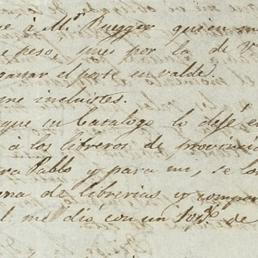 à Mr. Rueger quien m
peso, mes por la de V
ganar el porte en valde.
me incluistes.
que tu Catalogo lo dejé en
à los libreros de provincia
ra Pablo y para mi, se lo
una de librerias y compa
me dió con un 10% de